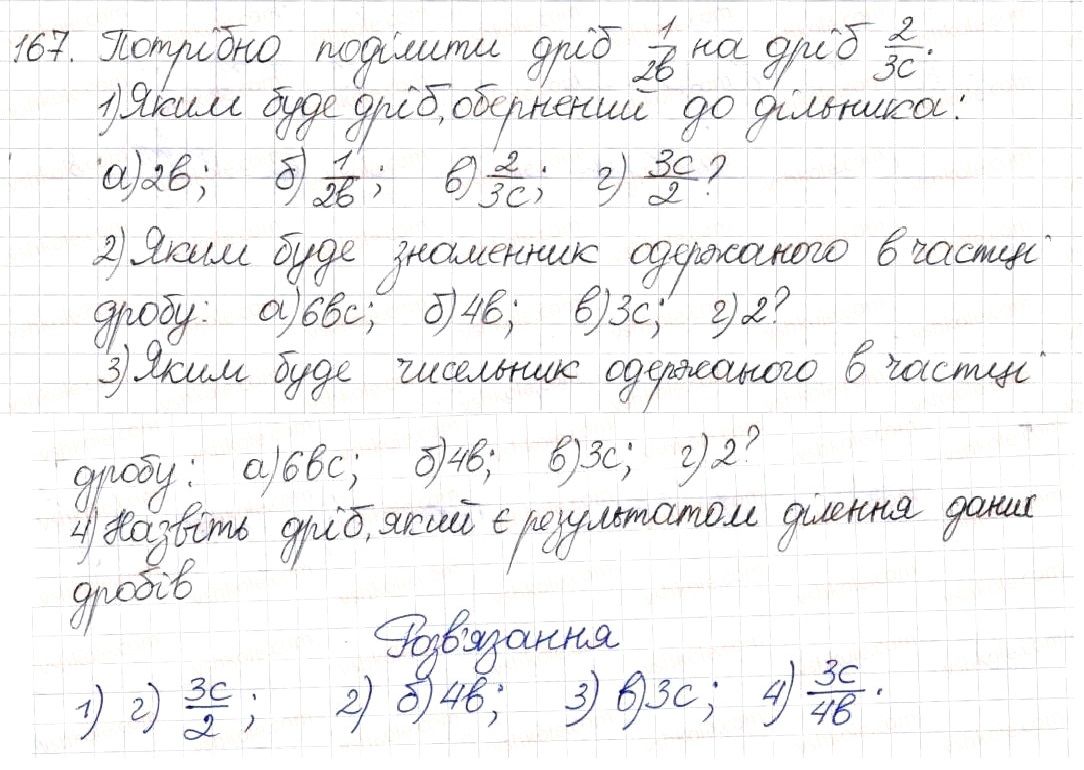 167. Потрібно поділити дріб 1/2в на дріб 2/3с.
1) Яким буде дріб, обернений до дільника:
а) 2в; б) 1/2в; в) 2/3с; г) 3с/2?
2) Яким буде знаменник одержаного в частці
дробу: а) 6вс; б) 4в; в) 3с; г) 2?
3) Яким буде чисельник одержаного в частці
дробу: а) 6вс; б) 4в; в) 3с; г) 2?
4) Назвіть дріб, який є результатом ділення даних
дробів
Розв'язання
1) г) 3с/2; 2) б) 4в; 3) в) 3с; 4) 3с/4в.